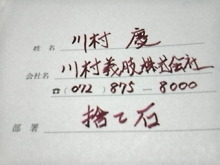 姓名 川村 慶
会社名 川村義肢株式会社
☎(072) 875-8000
部署 捨て石